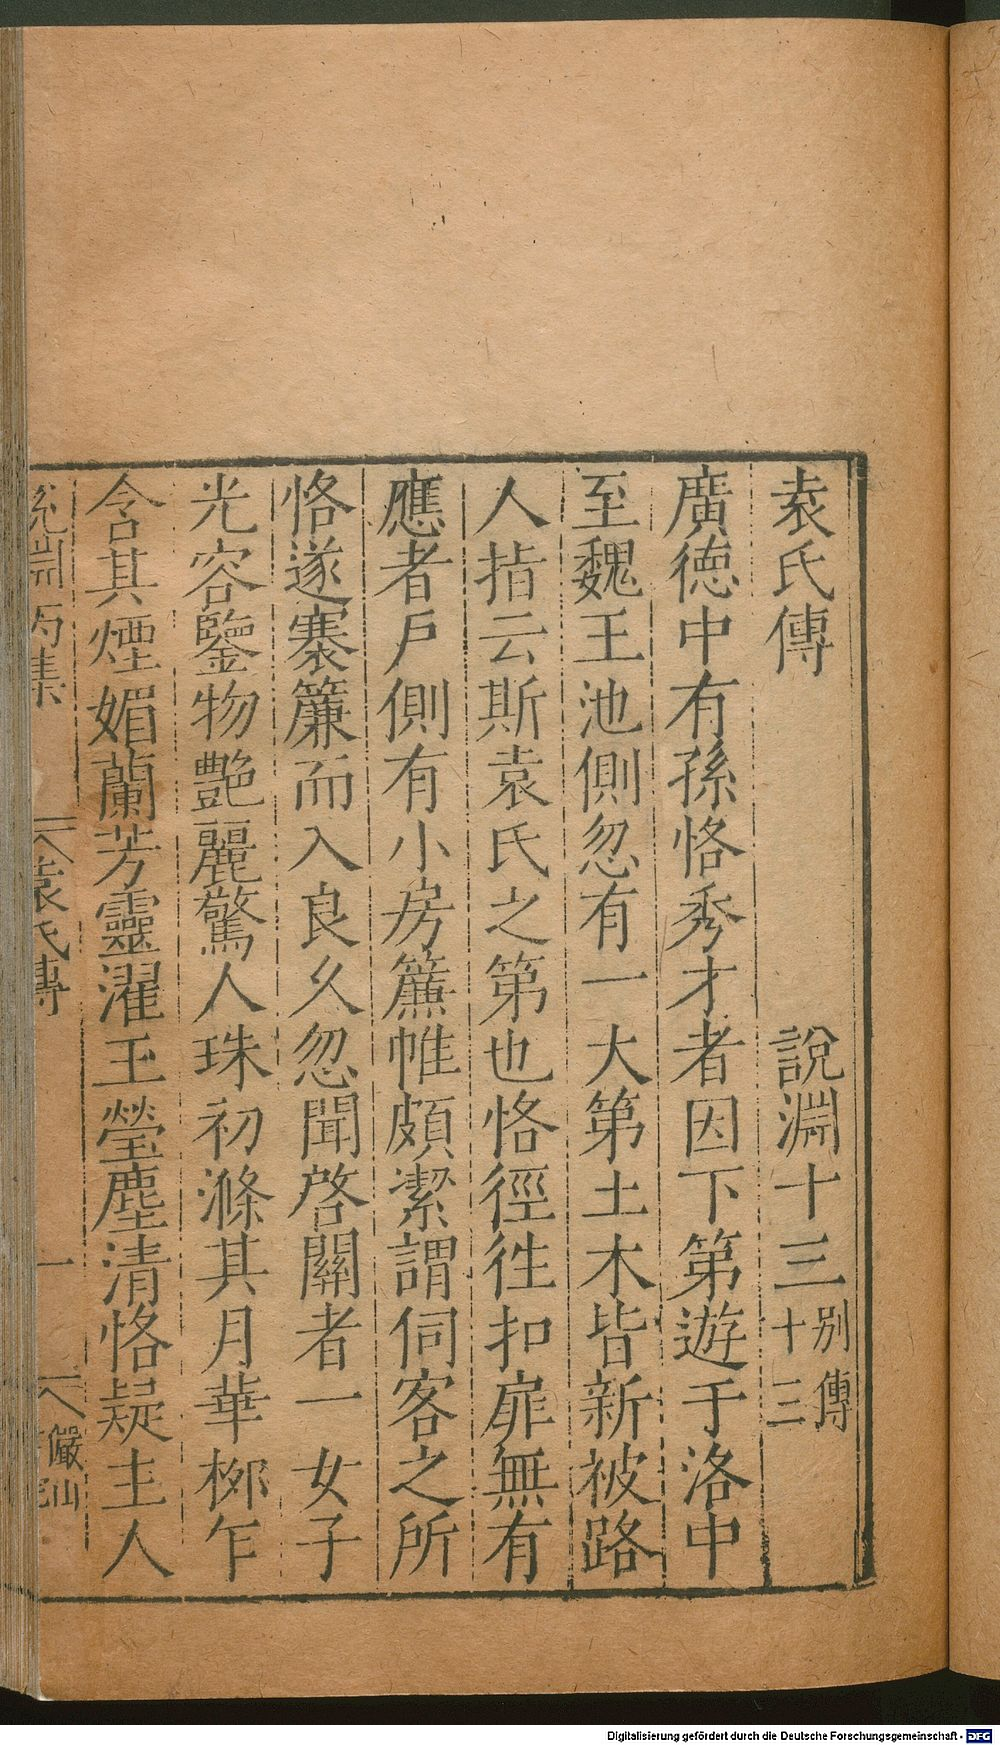 袁氏傳 說淵十三 別傳十三
廣德中有孫恪秀才者因下第遊于洛中
至魏王池側忽有一大第土木皆新被路
人指云斯袁氏之第也恪徑徃扣扉無有
應者戶側有小房簾帷頗潔謂伺客之所
恪遂褰簾而入良久忽聞啓關者一女子
光容鑒物艷麗驚人珠初滌其月華栁乍
含其煙媚蘭芳靈濯玉瑩塵清恪疑主人
說淵丙集 袁氏傳 一 儼山
Digitalisierung gefördert durch die Deutsche Forschungsgemeinschaft - DFG